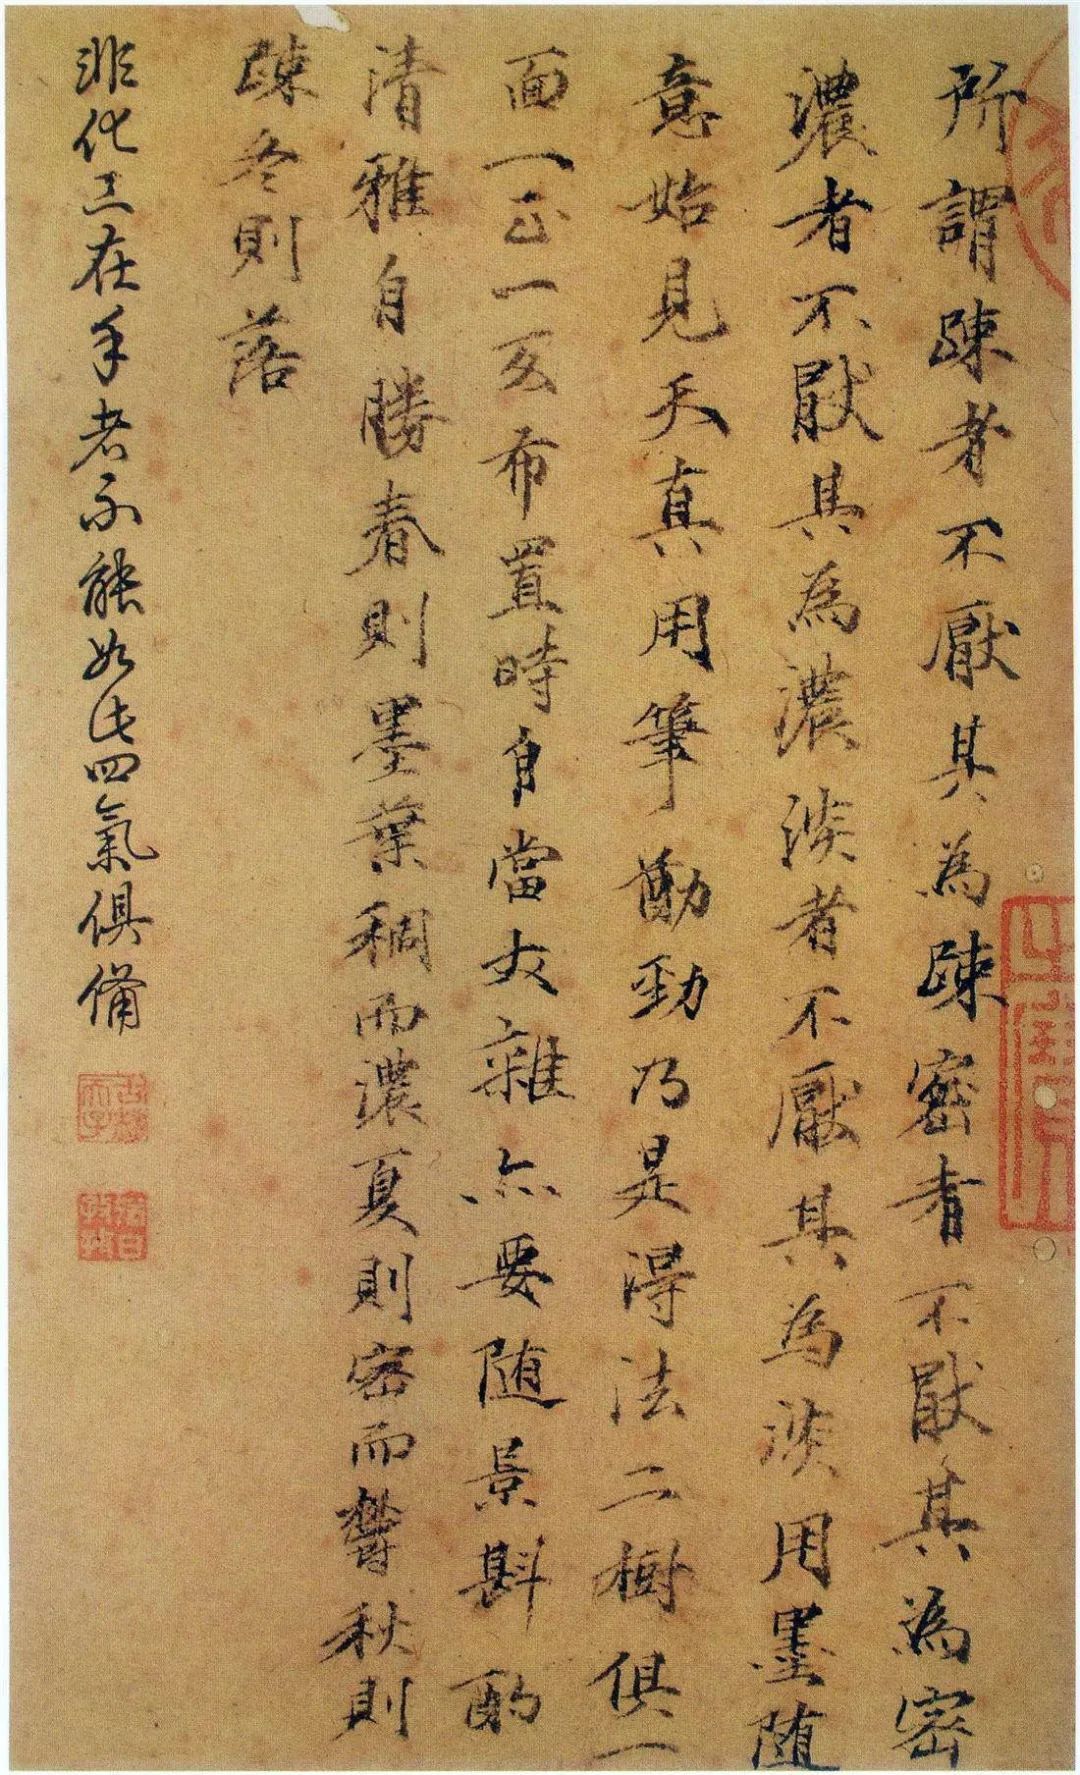 所謂踈者不厭其為踈密者不猒其為密
濃者不猒其為濃淡者不厭其為淡用墨随
意始見天真用筆勁乃是得法二樹俱一
面一正一布置時自當雜亦要随景斟酌
清雅自勝春則墨葉稠而濃夏則密而欝秋則
踈冬則落
非化工在手者不能如此四氣俱備